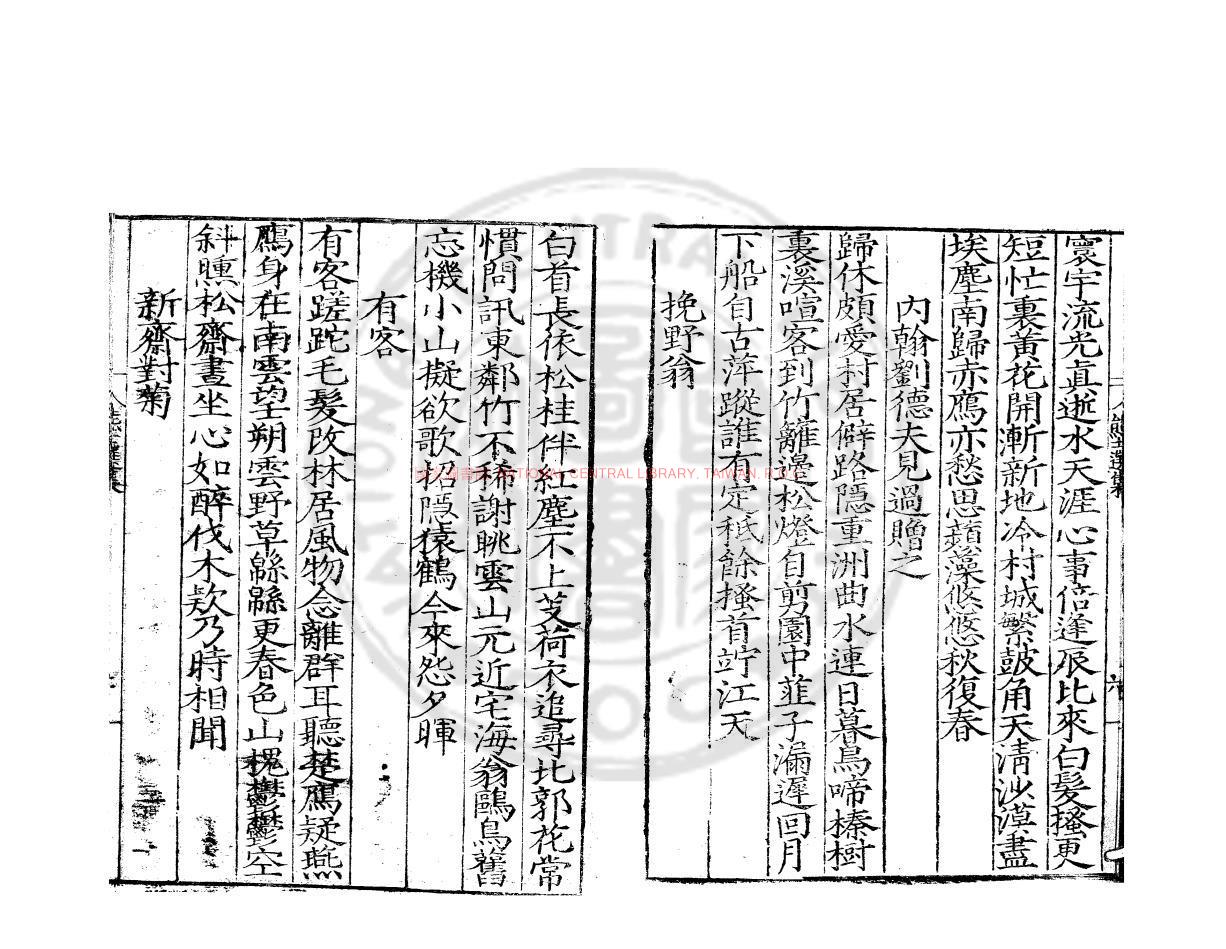 寰宇流光真逝水天涯心事倍逢辰比來白髮搔更
短忙裏黃花開漸新地冷村城繁鼓角天淸沙漠盡
埃塵南歸赤鴈亦愁思蘋藻悠悠秋復春
内翰劉德夫見過贈之
歸休頗愛村居僻路隱重洲曲水連日暮鳥啼榛樹
裏溪喧客到竹籬邊松燈自剪園中韮子漏遲回月
下船自古萍蹤誰有定秪餘搔首竚江天
挽野翁
白首長依松桂伴紅塵不上芰荷衣追尋北郭花常
慣問訊東鄰竹不稀謝眺雲山元近宅海翁鷗鳥舊
忘機小山擬欲歌招隱猿鶴今來怨夕暉
有客
有客蹉跎毛髮改林居風物念離群耳聽楚鴈疑燕
鴈身在南雲望朔雲野草緜緜更春色山槐鬱鬱空
斜曛松齋晝坐心如醉伐木欵乃時相聞
新齋對菊
六
國家圖書館 NATIONAL CENTRAL LIBRARY, TAIWAN, R.O.C.